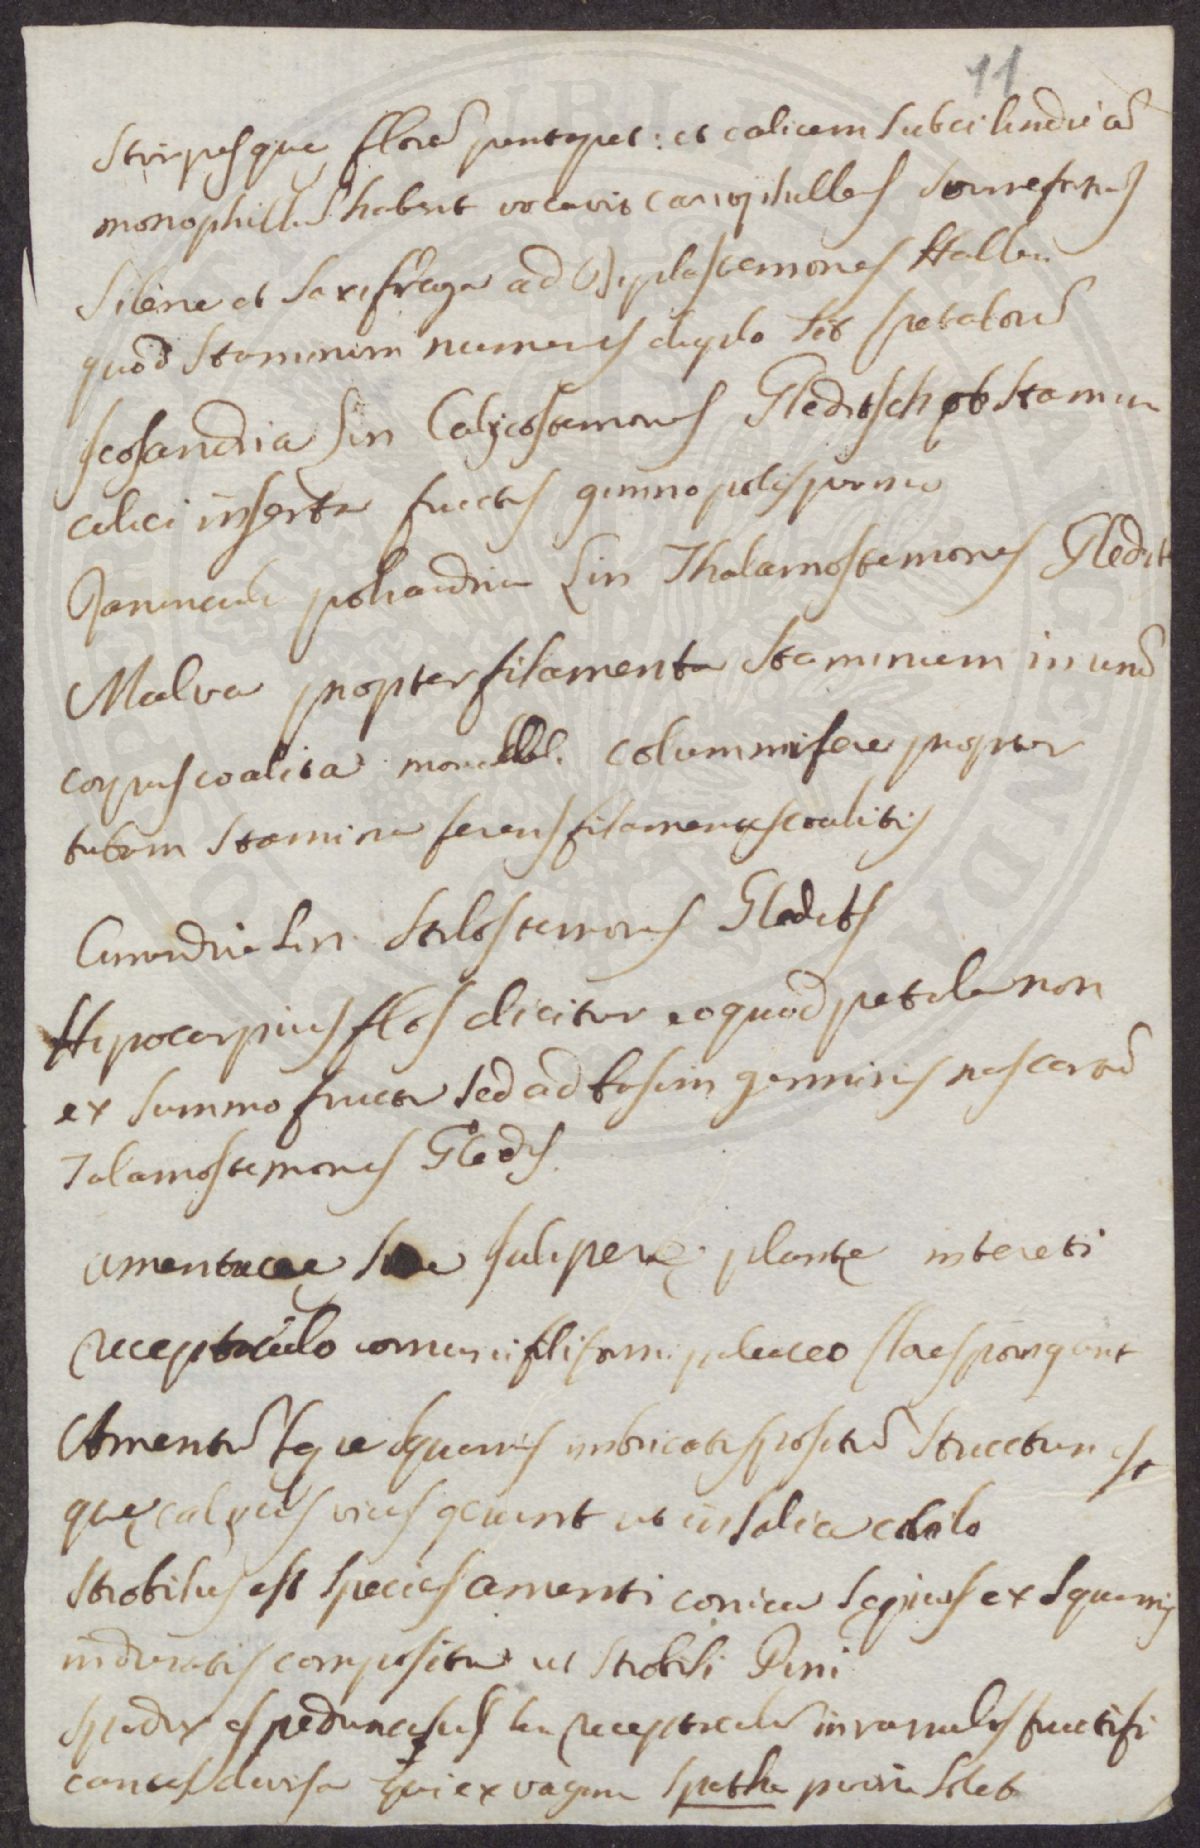 11
Stirpesque florē pentapet: et calicem Subcilindricū
monophillū habent vocavit cariophilleas Tournefortius
Silene et Saxifraga ad Diplostemones Halleri
quod Staminum numerus duplo sit petalorū
Icosandria Lin Calycostemones Gleditsch ob Stamina
calici inserta fructus gimnopolispermo
Ranunculi poliandria Lin Thalamostemones Gledit
Malva propter filamenta Staminum in unū
corpus coalita monadel. columnifere propter
tubam Stamina ferens filamentis coalitis
Cinandria Lin Stilostemones Gledits
Hipocarpius flos dicitur eo quod petala non
ex summo fructu sed ad basim germinis nascantū
Talamostemones Gleds.
amentacee sive julifere plantę in tereti
receptaculo comuni filiformi paleaceo flores porrigunt
Amentū seque squamis imbricatis positū Structum est
quę calycis vices gerunt ut in salice
Strobilus est species amenti conica sępius ex squamis
induratis composita ut Strobili Pini
Spadix est pedunculus seu receptaculū in ramulos fructifi
cantes divisa qui ex vagina spatha prodire solet